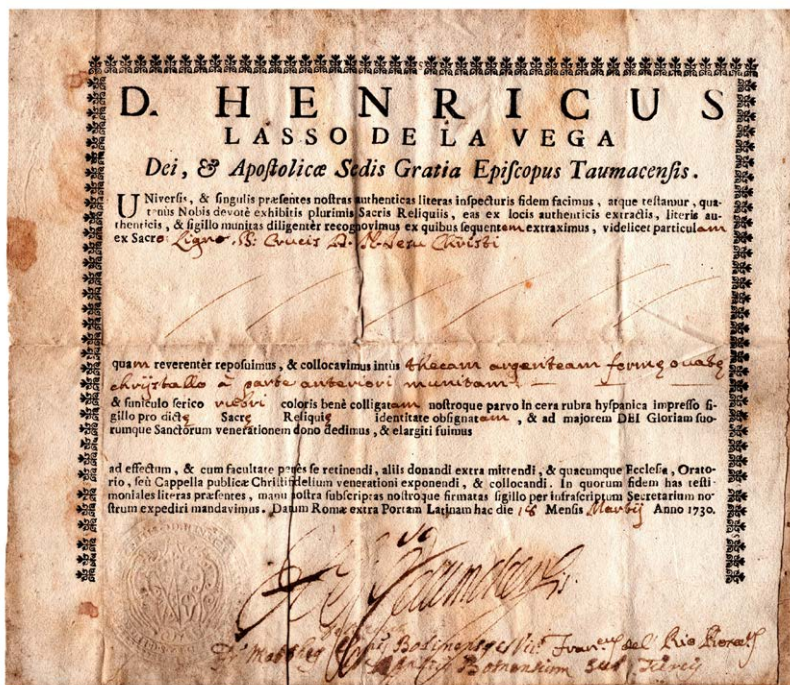 D. HENRICUS
LASSO DE LA VEGA
Dei, & Apoſtolicæ Sedis Gratia Epiſcopus Taumacenſis.
UNiverſis, & ſingulis præſentes noſtras authenticas literas inſpecturis fidem facimus, atque teſtamur, qua-
tenus Nobis devotè exhibitis plurimis Sacris Reliquiis, eas ex locis authenticis extractis, literis au-
thenticis, & ſigillo munitas diligentèr recognovimus ex quibus ſequentem extraximus, videlicet particulam
ex Sacro: Ligno. S: Crucis D. N. Jesu Christi
quam reverentèr repoſuimus, & collocavimus intùs thecam argenteam formę ovatę
chrijstallo à parte anteriori munitam.
& funiculo ſerico rubri coloris benè colligatam noſtroque parvo in cera rubra hyſpanica impreſſo ſi-
gillo pro dictę Sacrę Reliquię identitate obſignatam, & ad majorem DEI Gloriam ſuo-
rumque Sanctòrum venerationem dono dedimus, & elargiti fuimus
ad effectum, & cum facultate penès ſe retinendi, aliis donandi extra mittendi, & quacumque Eccleſia, Orato-
rio, ſeù Cappella publicæ Chriſtifidelium venerationi exponendi, & collocandi. In quorum fidem has teſti-
moniales literas præſentes, manu noſtra ſubſcriptas noſtroque firmatas ſigillo per infraſcriptum Secretarium no-
ſtrum expediri mandavimus. Datum Romæ extra Portam Latinam hac die 18 Menſis Martij Anno 1730.
Mathęus Bosinensis del Rio
Bosnensium sub